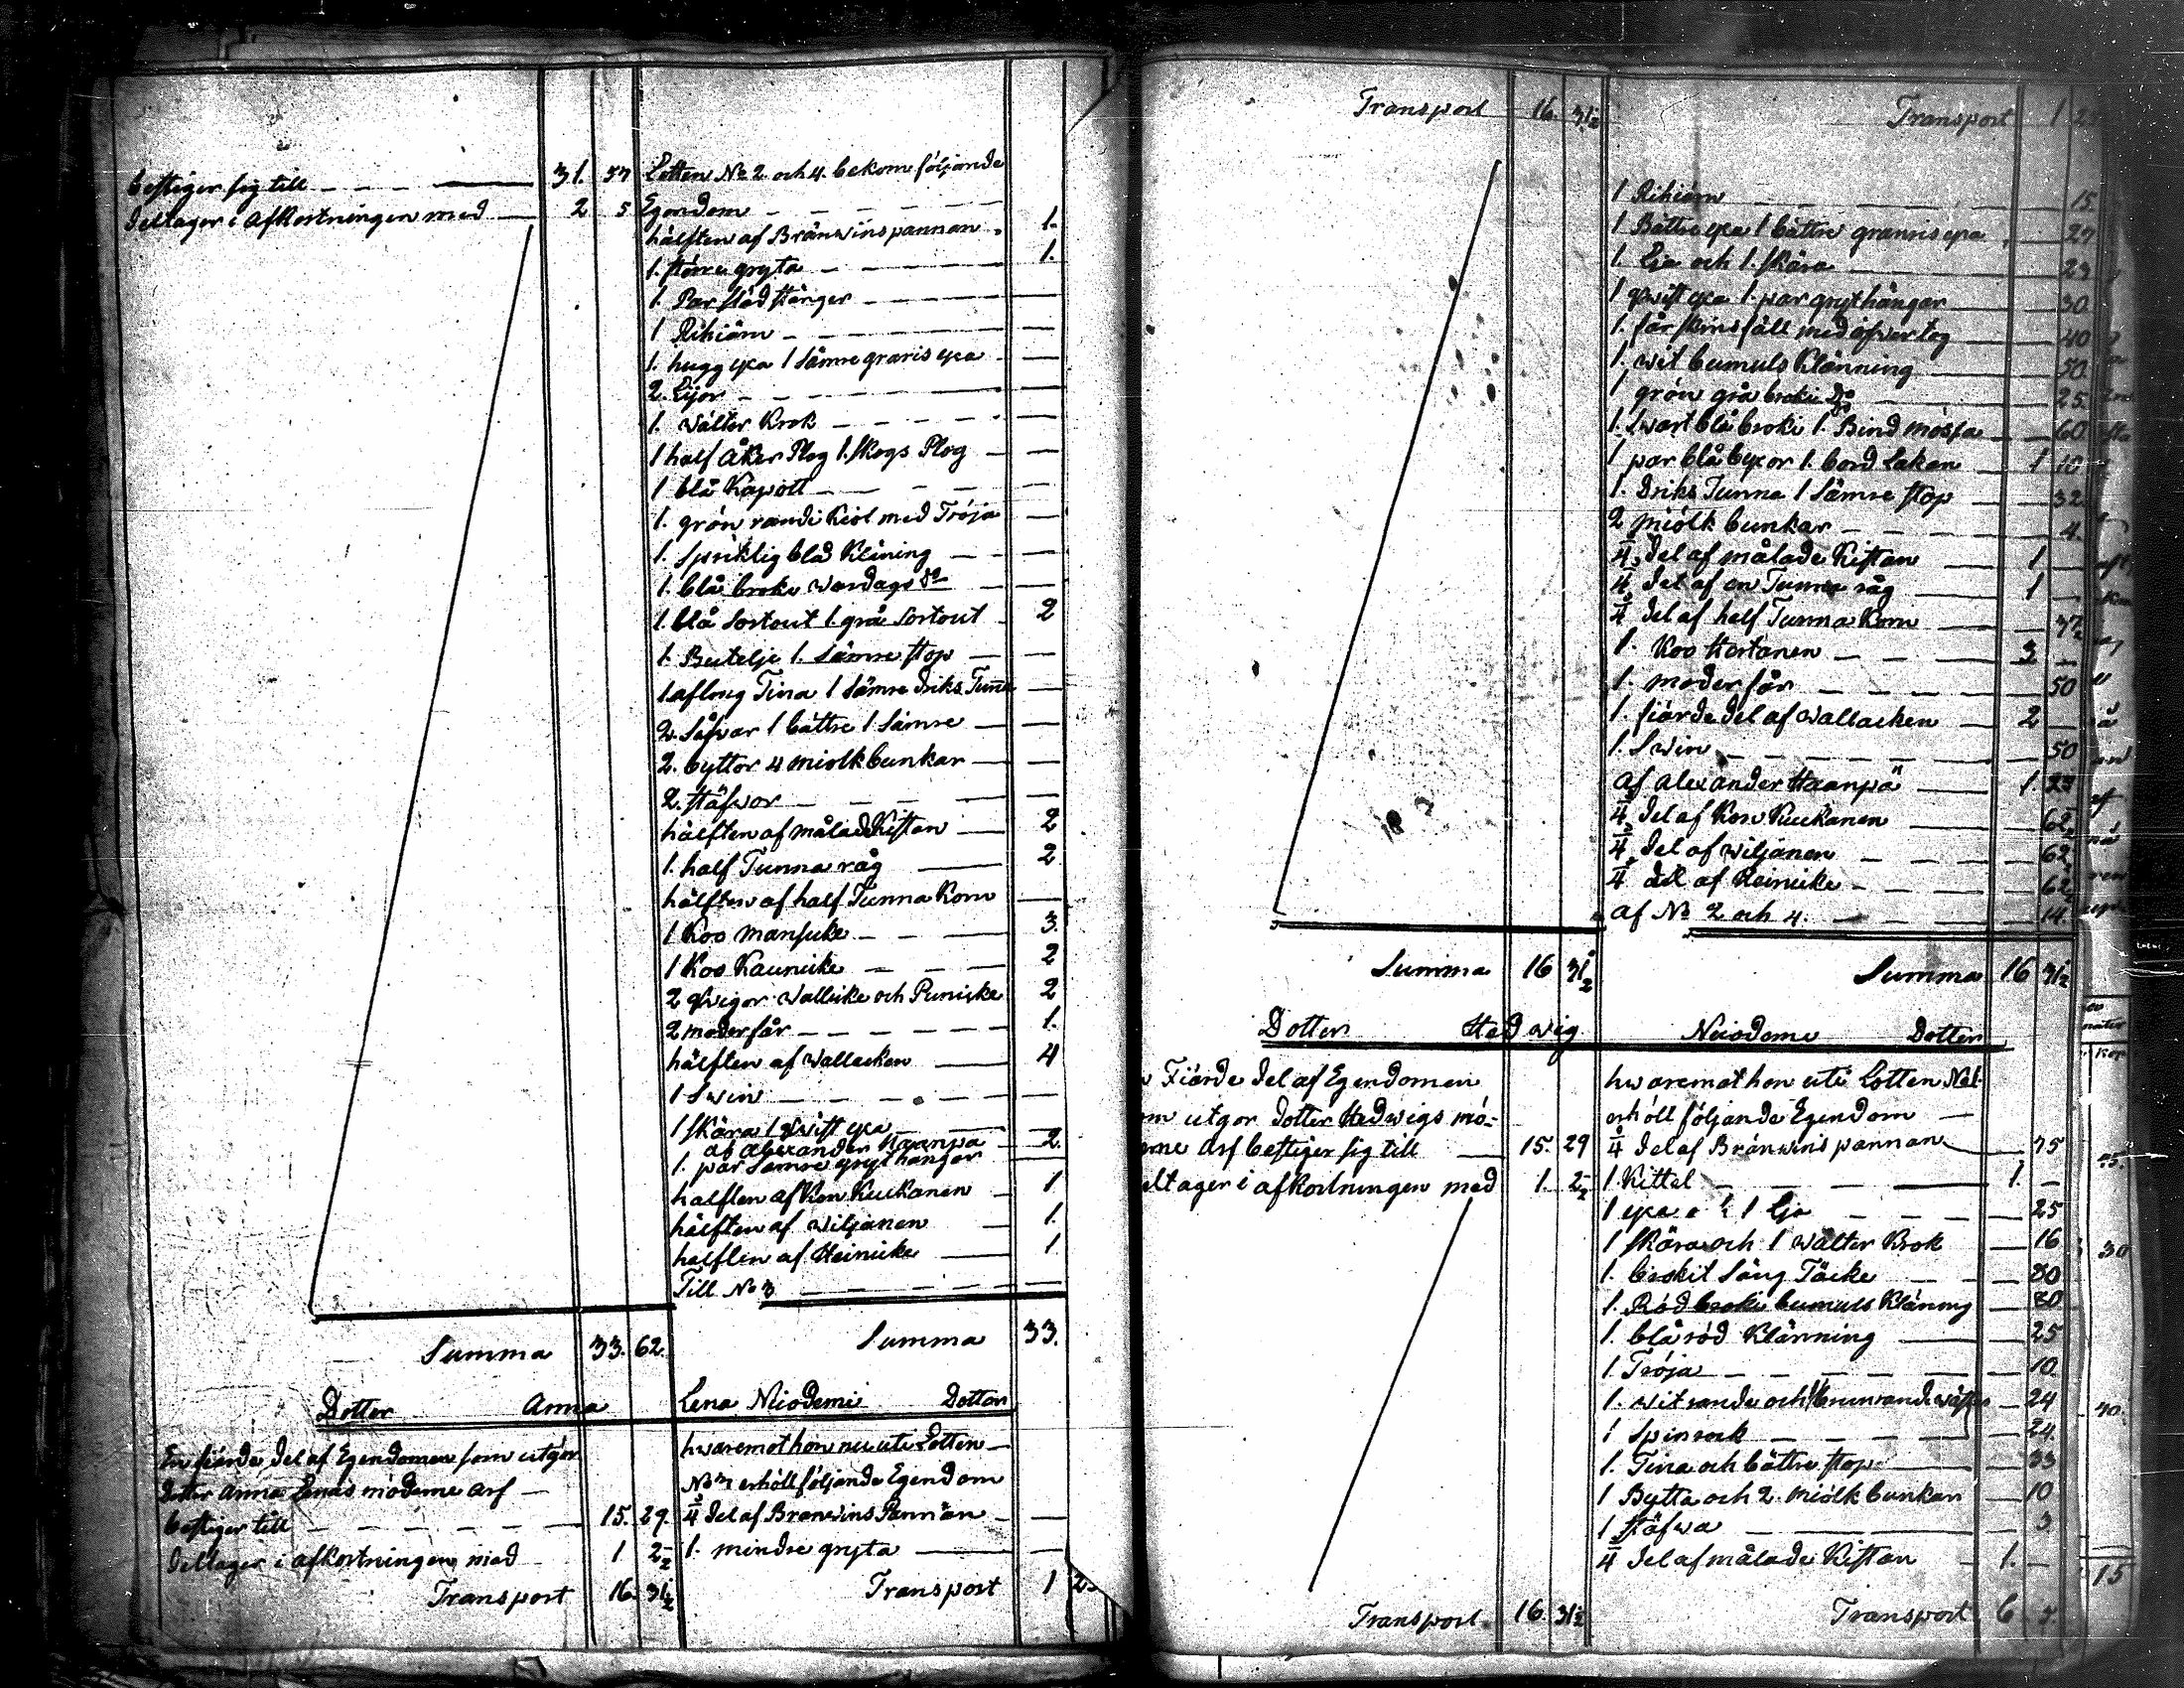 bestiger sig till 31. 57
deltager i afkortningen med 2 5
Summa 33. 62.
Lotten No 2 och 4 bekom följande
Egendom
hälften af Bränwinspannan 1.
1. större gryta 1.
1. Par städ stänger
1 Rihiäm
1. hugg yxa 1 sämre graris yxa
2. Lijor
1. Wälter Krok
1 half Åker Plog 1. skogs Plog
1 blå Kapott
1. grön randi Kiol med Tröja
1. Spriklig blå Kläning
1. blå broki wardags Do
1. blå Sortout 1. grå Sortout 2
1. Buteljе 1. sämre stop
1 aflong Tina 1 sämre driks Tunna
2. Såfwar 1 bättre 1 sämre
2. byttor 4 miölk bunkar
2. stäfwor
hälften af målade Kistan 2
1. half Tunna råg 2
hälften af half Tunna Korn
1 Koo Mansuke 3.
1 Koo Kaunicke 2
2 qwigor Wallike och Punicke 2
2 moderfår 1.
hälften af Wallacken 4
1 Swin
1 skära 1 qwist yxa
af Alexander Haanpä 2.
1. par sämre gryt hängor
halften af Kon Kuckanen 1
hälften af Wiljanen 1.
halften af Heinicke 1
Till No 3
Summa 33.
Dotter Anna Lena Niodemi Dotter
En fiärde del af Egendomen som utgör
Dotter Anna Lenas möderne arf
bestiger till 15. 29.
deltager i afkortningen med 1 2½
Transport 16. 31½
hwaremot hon nu uti Lotten
No 3 erhöll följande Egendom
¼ del af Branwins Pannan
1. mindre gryta
Transport 1 2
Transport 16. 31½
Summa 16 31½
Transport 1 2
1 Rihiäm 15.
1 Bättre yxa 1 bättre granris yxa 27
1. Lja och 1. skära 23
1 qwist yxa 1. par gryt hängor 30
1. får skins fäll med öfwertog 40
1. wit bumuls Klänning 50
1 grön grå broki Do 25.
1. Swart blå broki 1. Bind mössa 60
1 par blå byxor 1. bord Lakan 1 10
1. Driks Tunna 1 sämre stop 32
2 miölk bunkar 4.
¼ del af målade Kistan 1
¼ del af en Tunna råg 1
¼ del af half Tunna Korn 37½
1. Koo Hertanen 3
1. moder får 50
1. fiärde del af Wallacken 2
1. Swin 50
af Alexander Haanpä 1. 23
¼ del af Kon Kuckanen 62½
¼ del af Wiljanen 62½
¼ del af Heinicke 62½
af No 2 och 4. 14
Summa 16 31½
Dotter Hedwig Niodemi Dotter
Fiärde del af Egendomen
utgor Dotter Hedwigs mö-
arf bestiger sig till 15. 29
deltager i afkortningen med 1. 2½
Transport 16 31½
hwaremot hon uti Lotten No 1
erhöll följande Egendom
¼ del af Bränwins pannan 75
1 Kittel 1.
1 yxa 1 Lja 25
1 skära och 1 Wälter Krok 16
1. brokit Säng Täcke 80
1. Röd broki bumuls Klänning 80
1. blå röd Klänning 25
1. Tröja 10
1. wit rande och 1 brun rande 24
1 Spinrock 24
1. Tina och bättre stop 33
1 Bytta och 2. miölk bunkar 10
1 stäfwa 3
¼ del af målade Kistan 1.
Transport 6 5